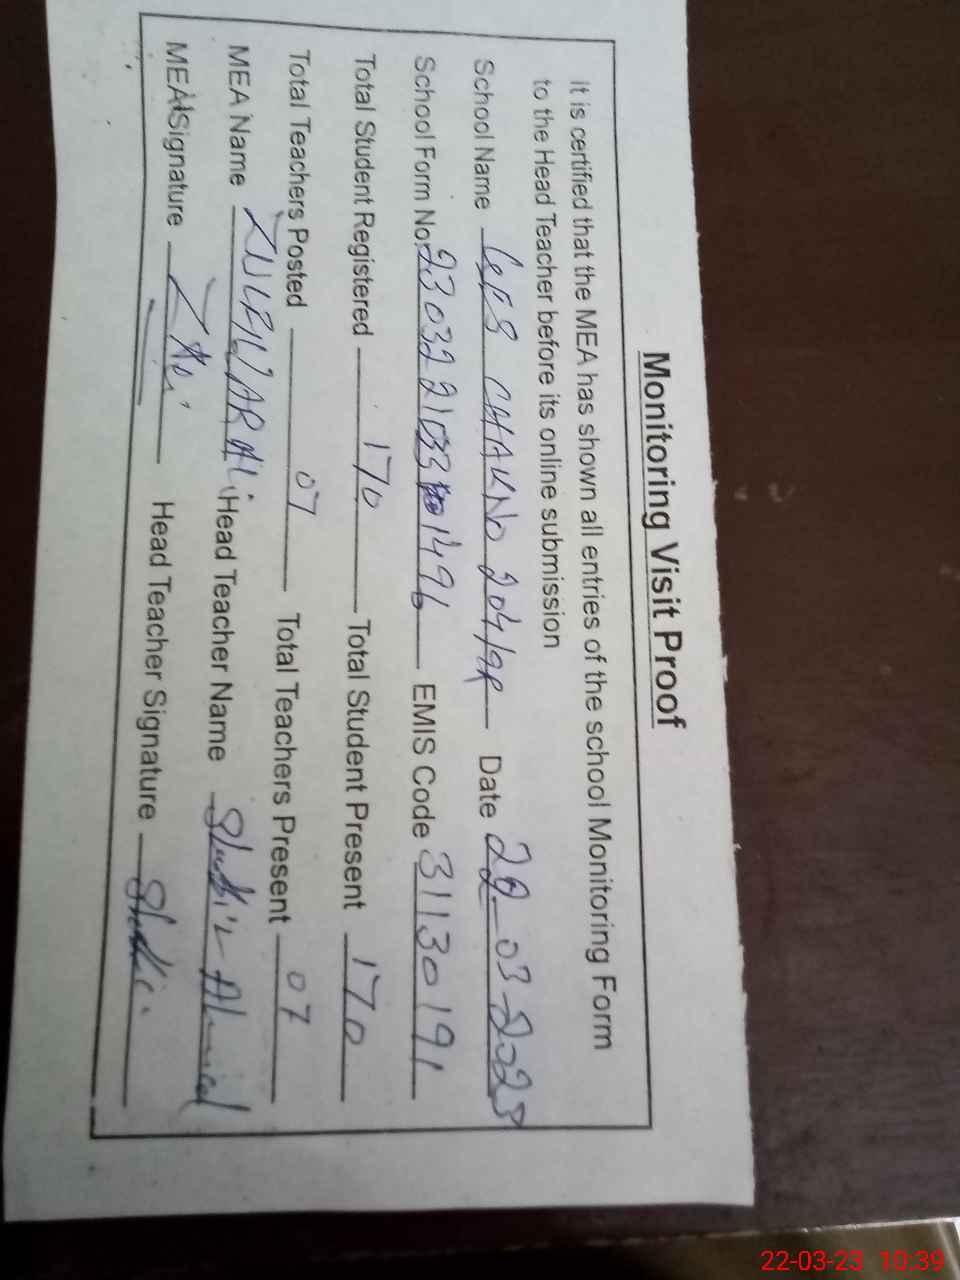 Monitoring Visit Proof
It is certified that the MEA has shown all entries of the school Monitoring Form
to the Head Teacher before its online submission
School Name GES CHAK NO 204/9R Date 22-03-2023
School Form No. 2303221033 1496 EMIS Code 31130191
Total Student Registered 170 Total Student Present 170
Total Teachers Posted 07 Total Teachers Present 07
MEA Name ZULFIQAR ALI Head Teacher Name Shabbir Ahmed
MEA Signature Head Teacher Signature
22-03-23 10:39